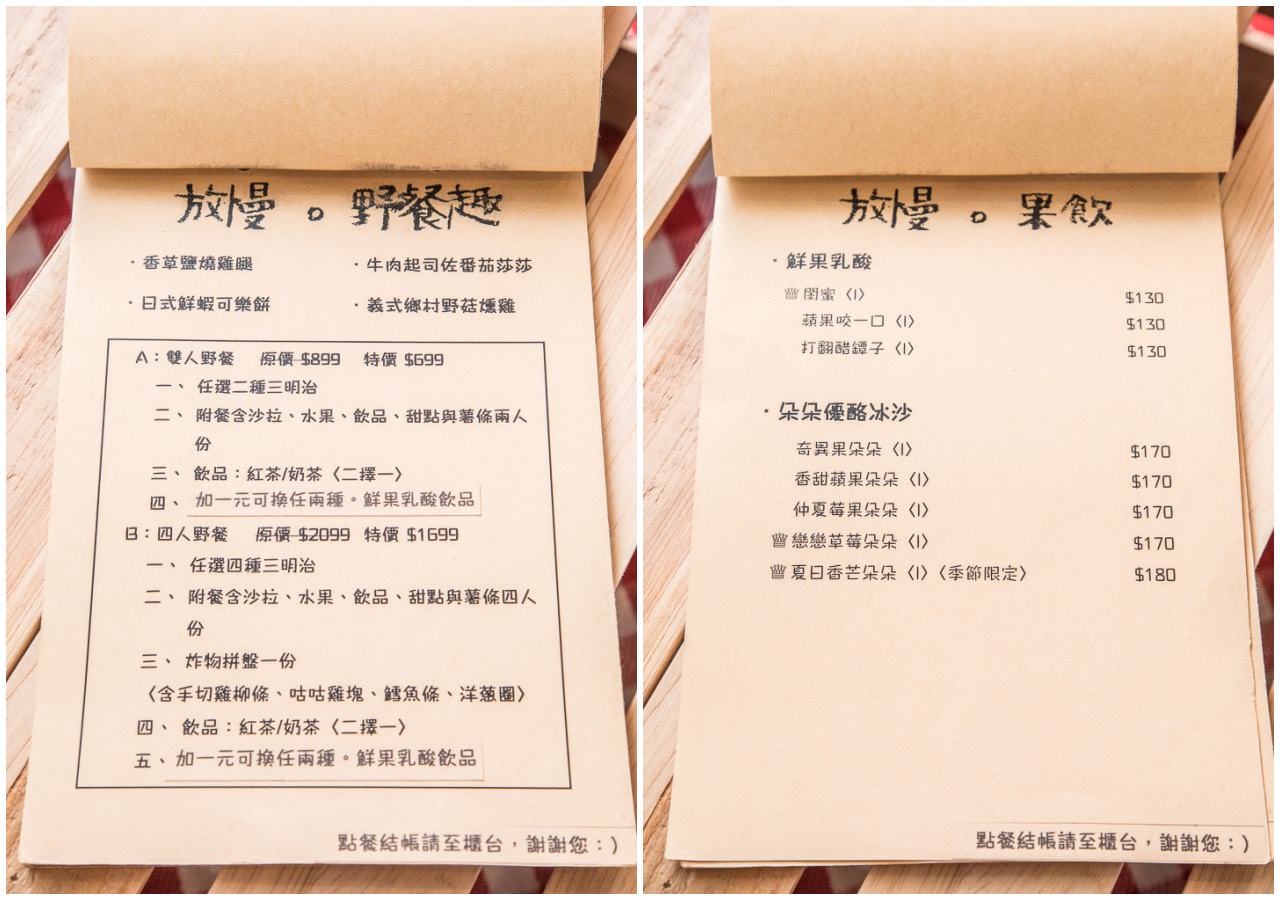 放慢。野餐趣
·香草鹽燒雞腿 ·牛肉起司佐番茄莎莎
·日式鮮蝦可樂餅 ·義式鄉村野菇燻雞
A：雙人野餐 原價 $899 特價 $699
一、 任選二種三明治
二、 附餐含沙拉、水果、飲品、甜點與薯條兩人
份
三、 飲品：紅茶/奶茶〈二擇一〉
四、 加一元可換任兩種。鮮果乳酸飲品
B：四人野餐 原價 $2099 特價 $1699
一、 任選四種三明治
二、 附餐含沙拉、水果、飲品、甜點與薯條四人
份
三、 炸物拼盤一份
〈含手切雞柳條、咕咕雞塊、鱈魚條、洋蔥圈〉
四、 飲品：紅茶/奶茶〈二擇一〉
五、 加一元可換任兩種。鮮果乳酸飲品
點餐結帳請至櫃台，謝謝您：)
放慢。果飲
·鮮果乳酸
閨蜜〈I〉 $130
蘋果咬一口〈I〉 $130
打翻醋罈子〈I〉 $130
·朵朵優酪冰沙
奇異果朵朵〈I〉 $170
香甜蘋果朵朵〈I〉 $170
仲夏莓果朵朵〈I〉 $170
戀戀草莓朵朵〈I〉 $170
夏日香芒朵朵〈I〉〈季節限定〉 $180
點餐結帳請至櫃台，謝謝您：)